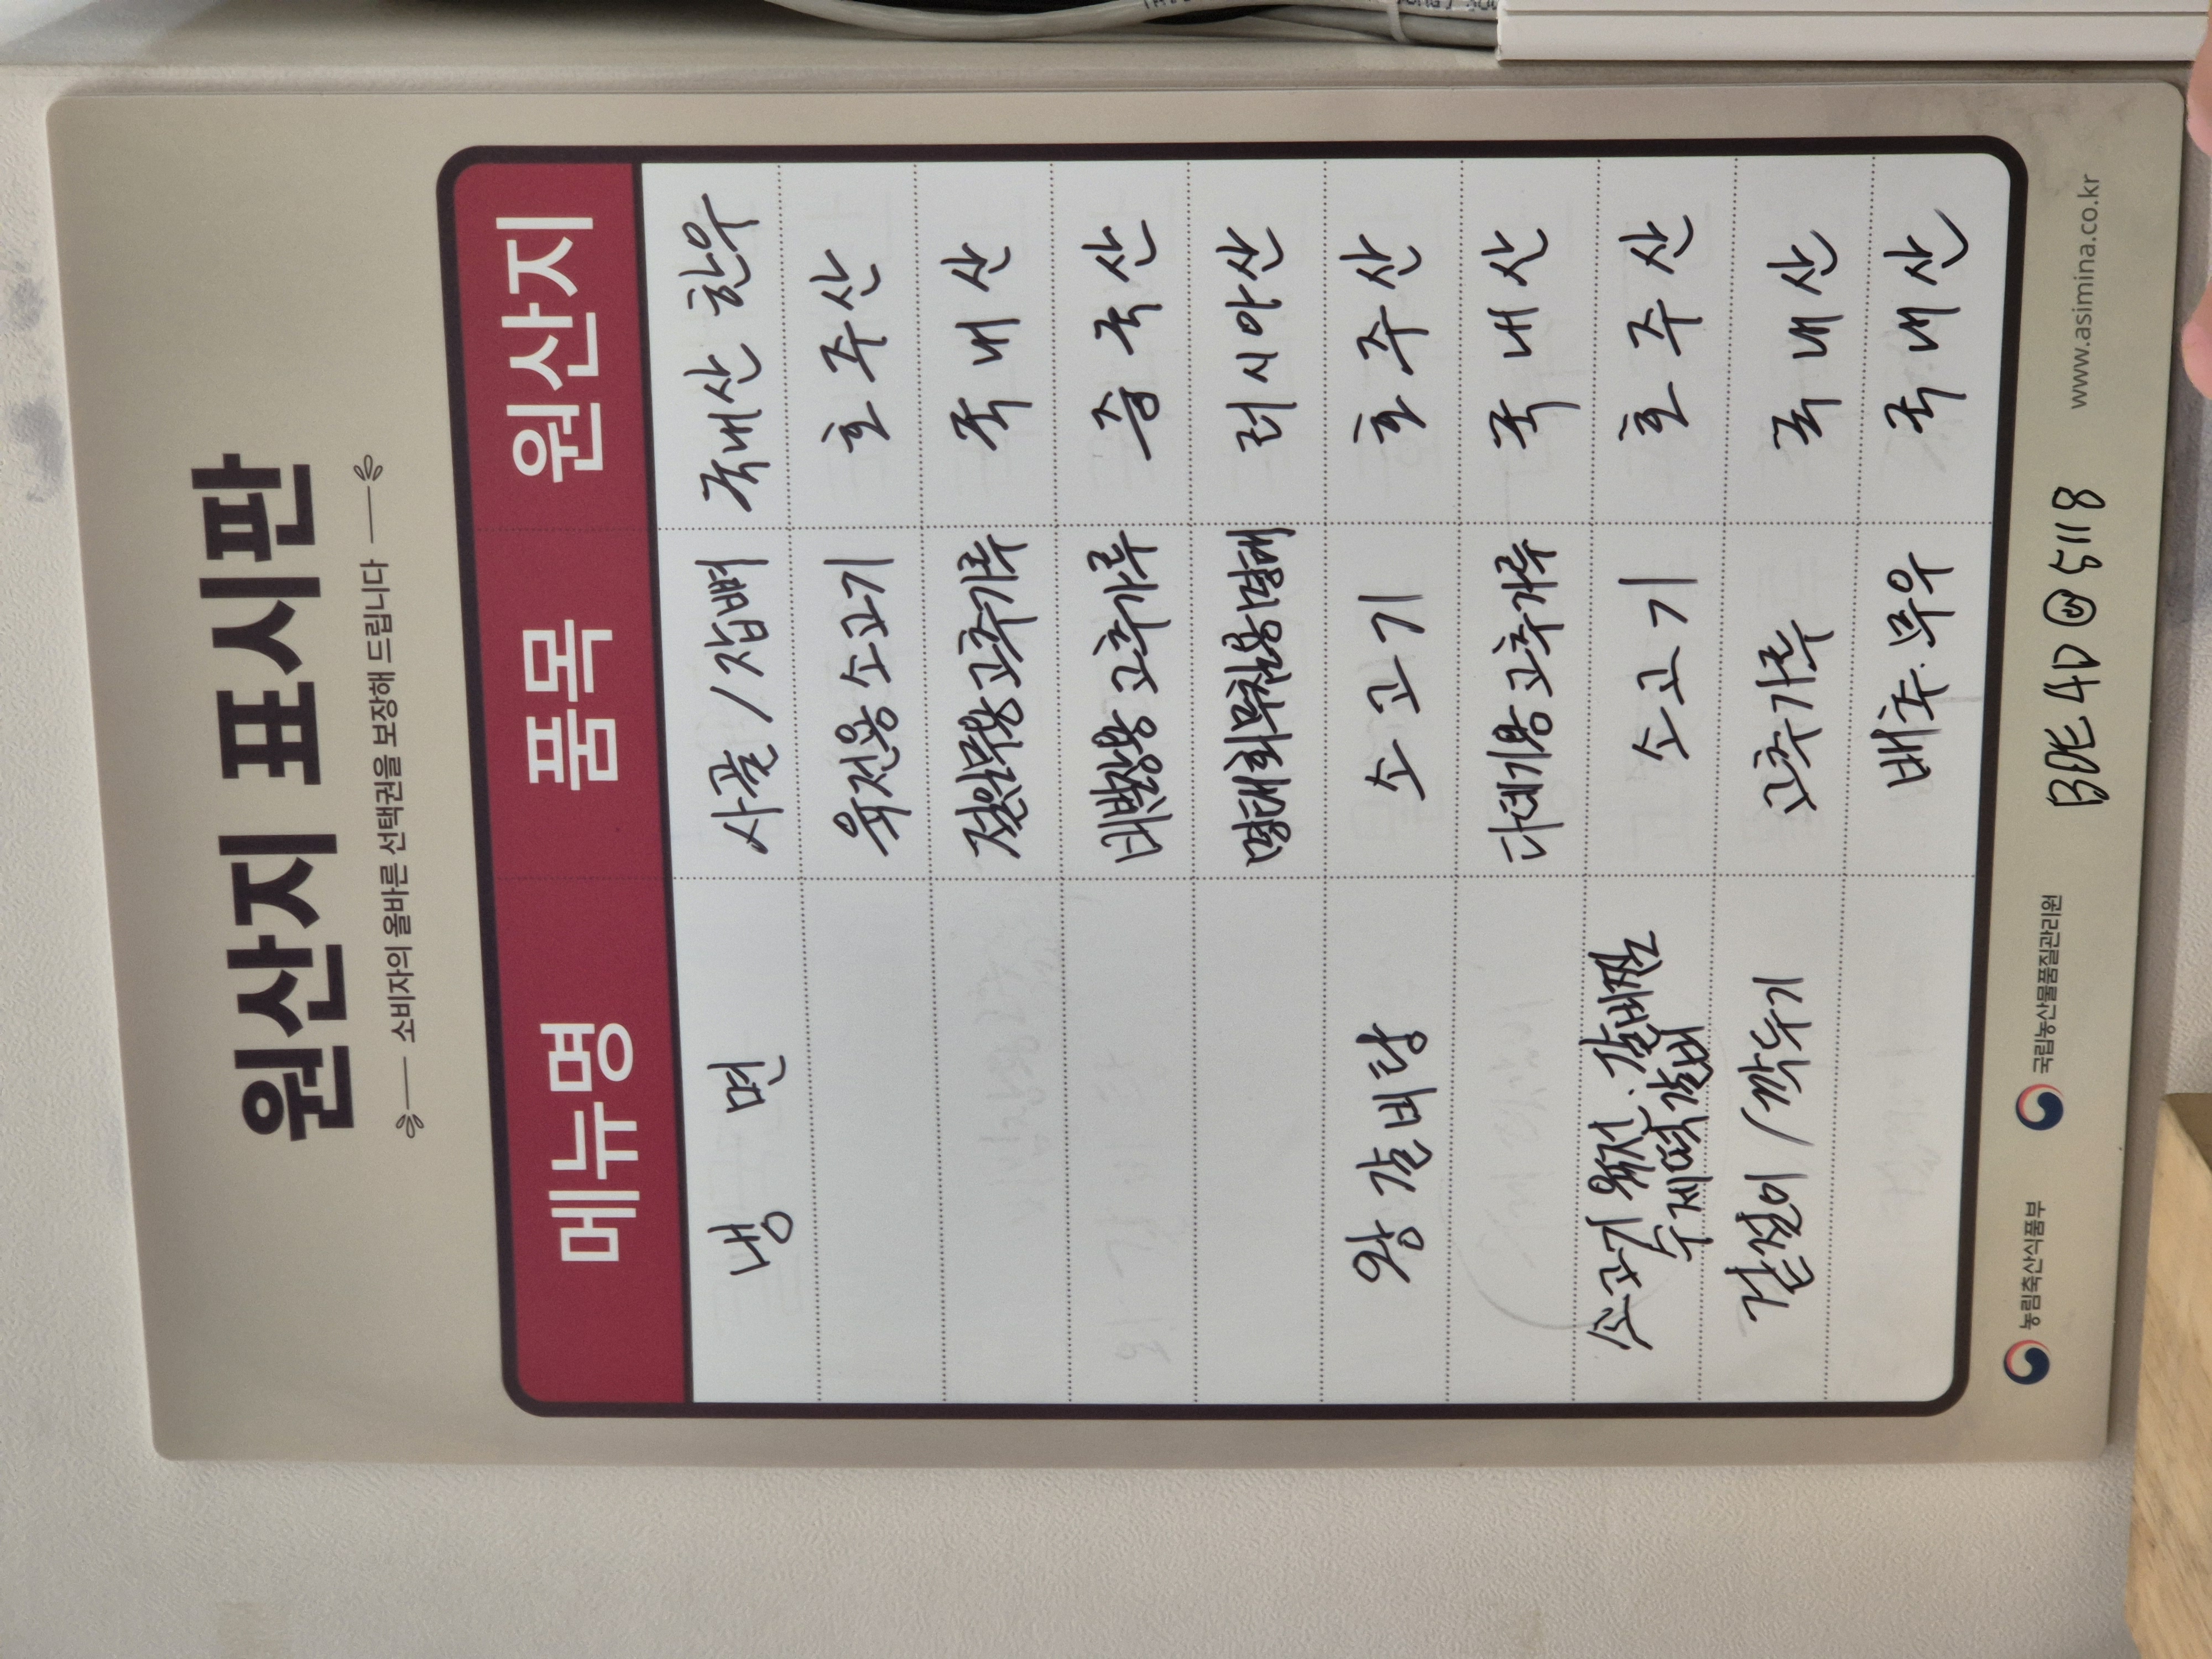 원산지 표시판
소비자의 올바른 선택권을 보장해 드립니다
메뉴명 품목 원산지
냉면 사골/잡뼈 국내산 한우
육전용 소고기 호주산
절임무용고추가루 국내산
비빔용고추가루 중국산
명태회무침용명태 러시아산
왕갈비탕 소고기 호주산
다데기용고추가루 국내산
소고기 육전. 갈비찜 소고기 호주산
수제떡갈비
겉절이/깍두기 고추가루 국내산
배추.무우 국내산
농림축산식품부 국립농산물품질관리원 www.asimina.co.kr
5118